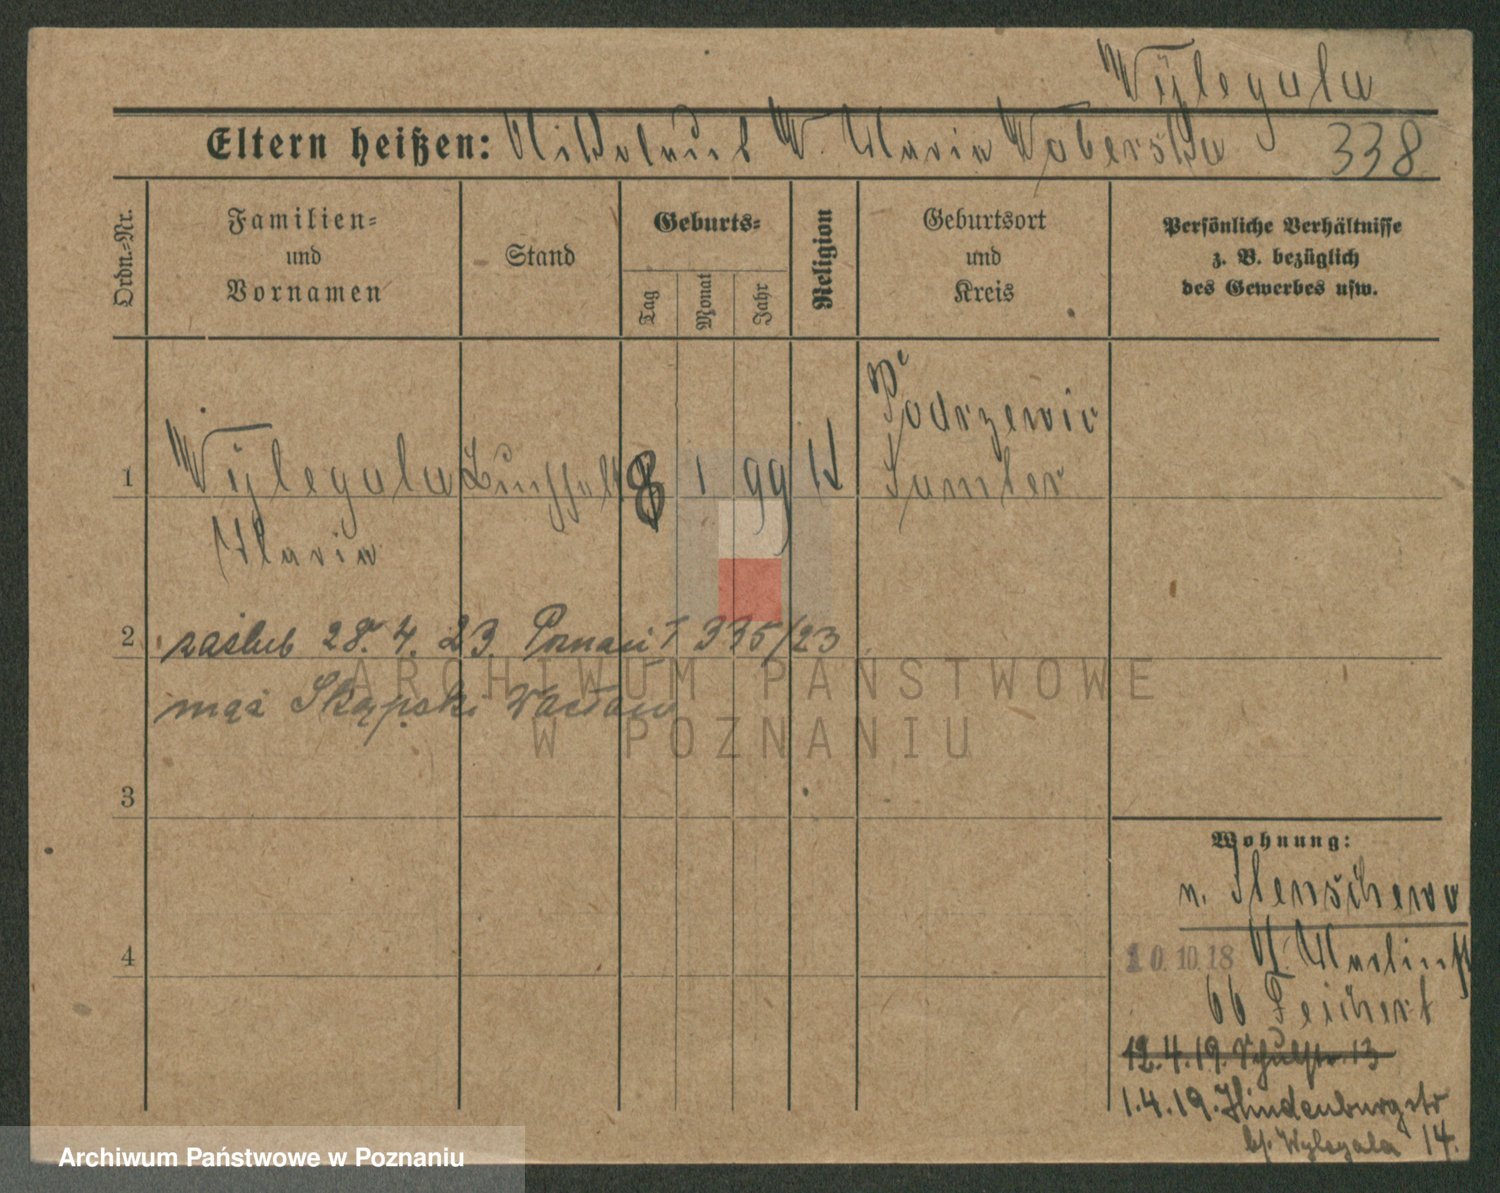 Wylegala
Eltern heißen: Nikolaus W. Maria Woberska 338
Ordn.-Nr.
Familien-
und
Vornamen
Stand
Geburts-
Tag
Monat
Jahr
Religion
Geburtsort
und
Kreis
Persönliche Verhältnisse
z. B. bezüglich
des Gewerbes usw.
1 Wylegala 8 1 99 K Podrzewie
Samter
Maria
2 zaślub 28. 4. 23. Poznań I 335/23
mąż Skąpski Wacław
3
4
Wohnung:
n. Stenschewo
10.10.18 St. Martinstr
66 Teichert
12.4.19. Schulstr. 13
1.4.19. Hindenburgstr
b/. Wylegala 14.
ARCHIWUM PAŃSTWOWE
W POZNANIU
Archiwum Państwowe w Poznaniu